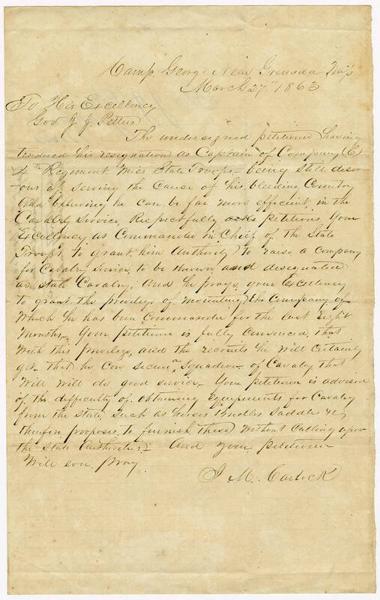 Camp George Near Grenada Miss
March 27th 1863
To His Excellency
Gov J. J. Pettus
The undersigned petitioner having
tendered his resignation as Captain of Company (E)
4th Regiment Miss State Troops being still desir-
ous of serving the Cause of his bleeding Country
and believing he can be far more efficient in the
Cavalry Service, Respectfully asks petitions your
Excellency, as Commander in Chief of the State
Troops to grant him Authority to raise a Company
for Cavalry Service to be known and designated
as State Cavalry, and he prays your Excellency
to grant the privilege of mounting the Company of
which he has been Commander for the last eight
months. Your petitioner is fully convinced that
with this privilege, and the recruits he will certainly
get that he can secure a Squadron of Cavalry that
will do good service. Your petitioner is advised
of the difficulty of obtaining Equipments for Cavalry
from the State such as horses bridles saddle &c
therefore proposes to furnish these without calling upon
the State Authorities. And your petitioner
will ever pray.
J. M. Carlock